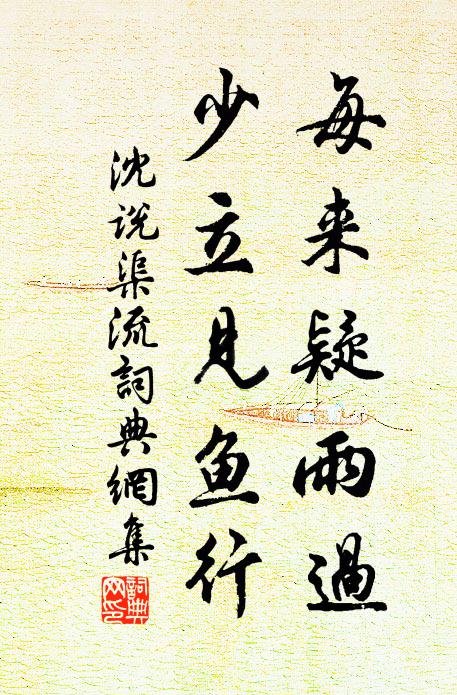 每来疑雨過
少立見鱼行
沈说渠流詞典網集
詞典网印